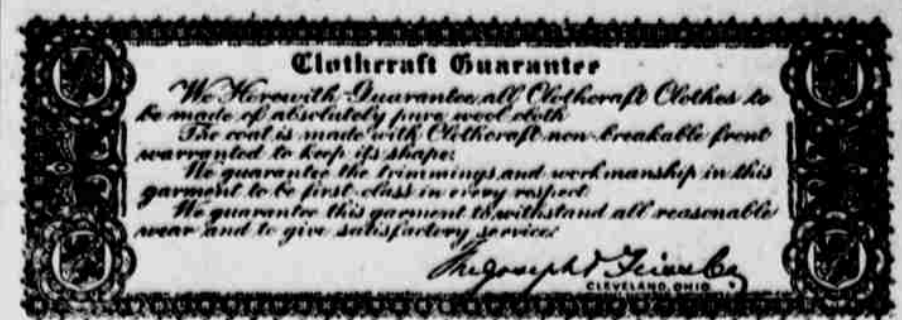 Clothcraft Guarantee
We Herewith Guarantee all Clothcraft Clothes to
be made of absolutely pure wool cloth
The coat is made with Clothcraft non-breakable front
warranted to keep its shape.
We guarantee the trimmings and workmanship in this
garment to be first-class in every respect
We guarantee this garment to withstand all reasonable
wear and to give satisfactory service.
The Joseph & Feiss Co
CLEVELAND, OHIO